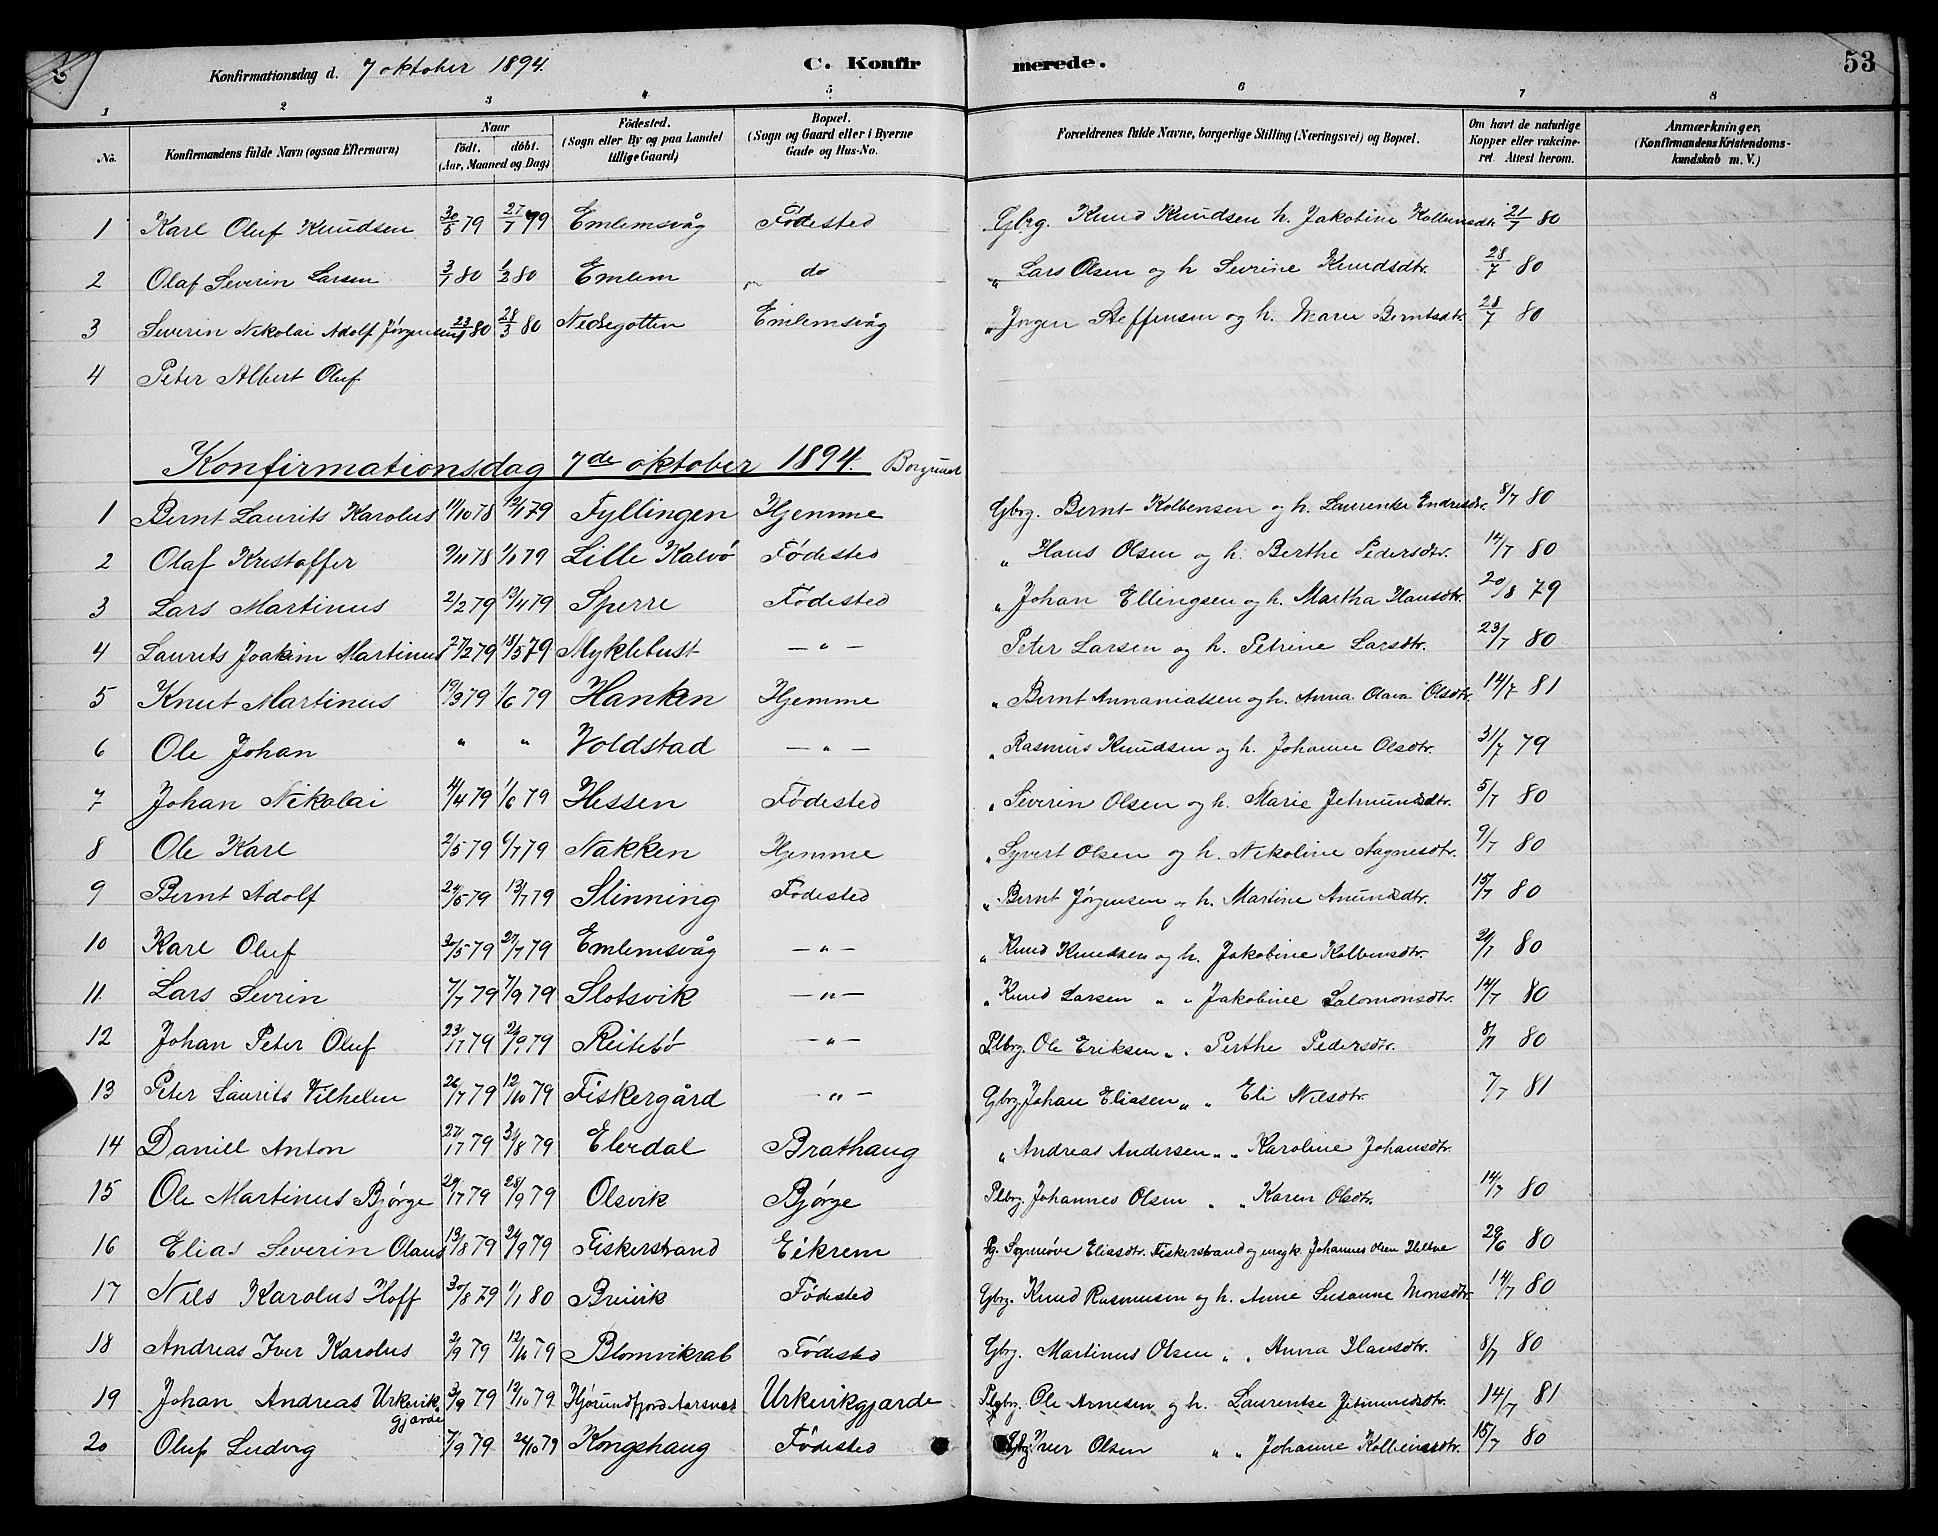 Konfirmationsdag d. 7 oktober 1894. C. Konfirmerede. 53
1 2 3 4 5 6 7 8
No. Konfirmandens fulde Navn (ogsaa Efternavn) Naar født. døbt. (Aar, Maaned og Dag) Fødested. (Sogn eller By og paa Landet tillige Gaard) Bopæl. (Sogn og Gaard eller i Byerne Gade og Hus-No. Forældrenes fulde Navne, borgerlige Stilling (Næringsvei) og Bopæl. Om havt de naturlige Kopper eller vakcineret. Attest herom. Anmærkninger. (Konfirmandens Kristendomskundskab m. V.)
1 Karl Oluf Knudsen 30/5 79 27/7 79 Emlemsvåg Fødested Gbrg. Knud Knudsen h. Jakobine Kolbensdtr. 21/7 80
2 Olaf Severin Larsen 3/1 80 1/3 80 Emlem do " Lars Olsen og h Sevrine Knudsdtr. 28/7 80
3 Severin Nikolai Adolf Jørgensen 23/1 80 28/3 80 Nedregotten Emlemsvåg " Jørgen Steffensen og h. Marie Berntsdtr. 28/7 80
4 Peter Albert Oluf
Konfirmationsdag 7de oktober 1894. Borgund
1 Bernt Laurits Karolus 11/10 78 12/1 79 Fyllingen Hjemme Gbrg. Bernt Kolbensen og h. Laurentse Endresdtr. 8/7 80
2 Olaf Kristoffer 9/11 78 1/1 79 Lille Kalvø Fødested " Hans Olsen og h. Berthe Pedersdtr. 14/7 80
3 Lars Martinus 2/2 79 13/4 79 Sperre Fødested " Johan Ellingsen og h. Martha Hansdtr. 20/8 79
4 Laurits Joakim Martinus 27/2 79 18/5 79 Myklebust — " — Peter Larsen og h. Petrine Larsdtr. 23/7 80
5 Knut Martinus 19/3 79 1/6 79 Hanken Hjemme " Bernt Annaniassen og h. Anna Olava Olsdtr. 14/7 81
6 Ole Johan " " Voldstad — " — " Rasmus Knudsen og h. Johanne Olsdtr. 31/7 79
7 Johan Nikolai 11/4 79 1/6 79 Hessen Fødested " Severin Olsen og h. Marie Jetmundsdtr. 5/7 80
8 Ole Karl 2/5 79 6/7 79 Nakken Hjemme " Syvert Olsen og h. Nikoline Aagnesdtr. 9/7 80
9 Bernt Adolf 24/5 79 13/7 79 Slinning Fødested " Bernt Jørgensen og h. Martine Anundsdtr. 15/7 80
10 Karl Oluf 30/5 79 27/7 79 Emlemsvåg — " — " Knud Knudsen og h. Jakobine Kolbensdtr. 21/7 80
11. Lars Sevrin 7/7 79 7/9 79 Slotsvik — " — " Knud Larsen " " Jakobine Salomonsdtr. 14/7 80
12 Johan Peter Oluf 23/7 79 21/9 79 Reitebø — " — Plbrg. Ole Eriksen " " Perthe Pedersdtr. 8/7 80
13 Peter Laurits Vilhelm 26/7 79 12/10 79 Fiskergård — " — Gbrg. Johan Eliasen " " Eli Nilsdtr. 7/7 81
14 Daniel Anton 27/7 79 31/8 79 Elvedal Brathaug " Andreas Andersen " " Karoline Johansdtr.
15 Ole Martinus Bjørge 29/7 79 28/9 79 Olsvik Bjørge Plbrg. Johannes Olsen " " Karen Olsdtr. 14/7 80
16 Elias Severin Olaus 13/8 79 21/9 79 Fiskerstrand Eikrem Pg. Synnøve Eliasdtr. Fiskerstrand og ungk. Johannes Olsen 29/6 80
17 Nils Karolus Hoff 30/8 79 1/1 80 Breivik Fødested Gbrg. Knud Rasmusen og h. Anne Susanne Monsdtr. 14/7 80
18 Andreas Iver Karolus 2/9 79 12/10 79 Blomvikrab Fødested Gbrg. Martinus Olsen " " Anna Hansdtr. 8/7 80
19 Johan Andreas Urkevikgjærde 3/9 79 19/10 79 Hjørundfjord Aarsnes Urkevikgjærde Plbrg. Ole Arnesen og h. Laurentse Jetmundsdtr. 14/7 81
20 Oluf Ludvig 7/9 79 26/10 79 Kongshaug Fødested Gbrg. Iver Olsen " " Johanne Kolbensdtr. 15/7 80